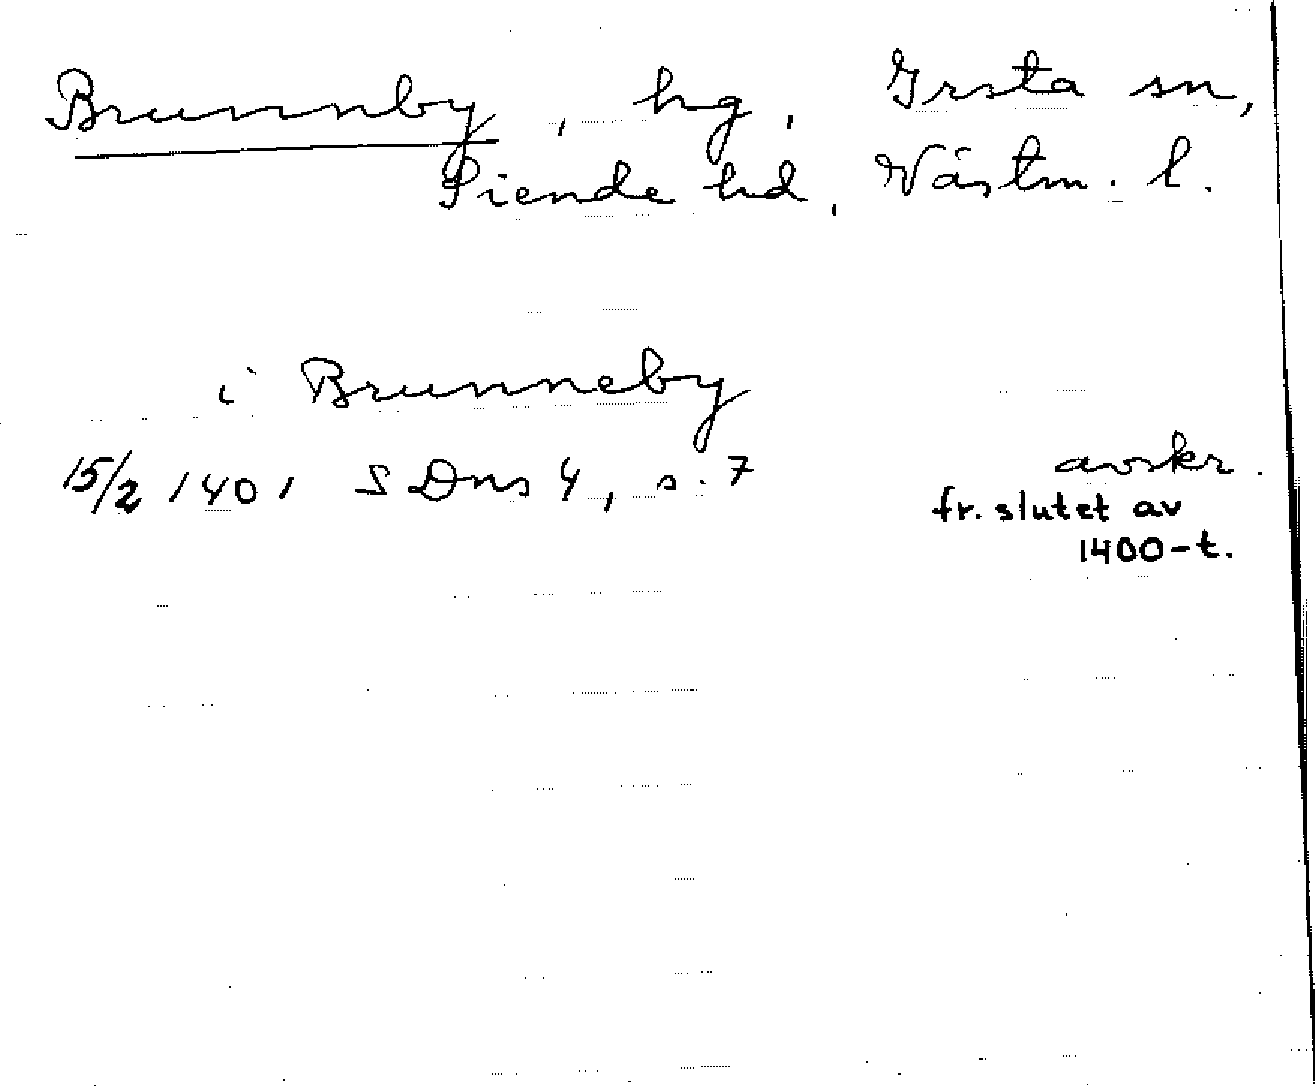 Brunnby, hg, Irsta sn,
Siende hd, Västm. l.
i Brunneby
15/2 1401 SDns 4, s. 7
avskr.
fr. slutet av
1400-t.